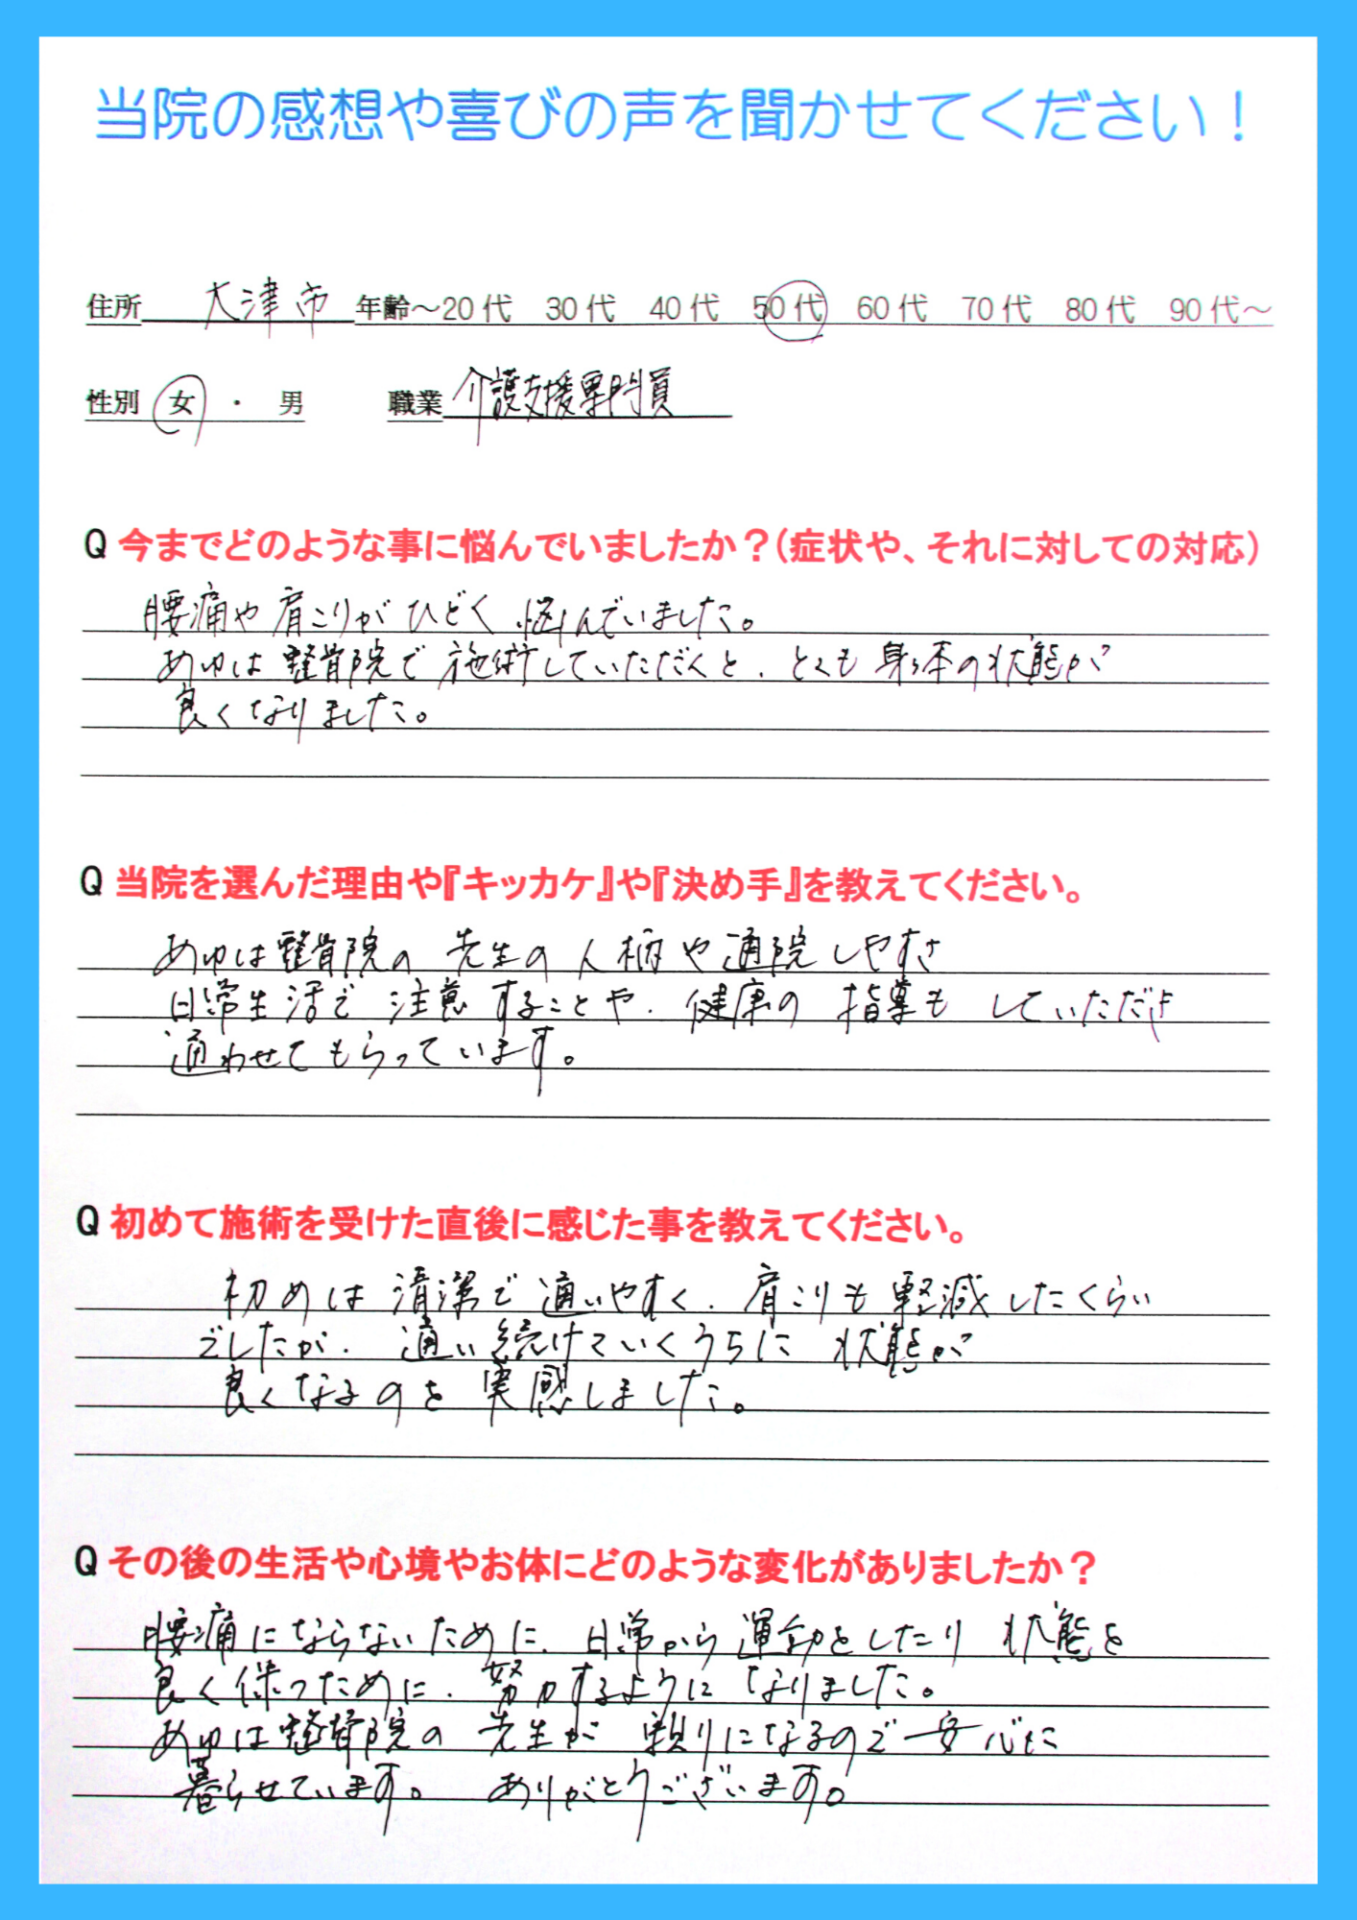 当院の感想や喜びの声を聞かせてください！
住所 大津市 年齢～20代 30代 40代 50代 60代 70代 80代 90代～
性別 女 ・ 男 職業 介護支援専門員
Q 今までどのような事に悩んでいましたか？(症状や、それに対しての対応)
腰痛や肩こりがひどく、悩んでいました。
あゆは整骨院で施術していただくと、とても身体の状態が
良くなりました。
Q 当院を選んだ理由や『キッカケ』や『決め手』を教えてください。
あゆは整骨院の先生の人柄や通院しやすさ
日常生活で注意することや、健康の指導もしていただき
通わせてもらっています。
Q 初めて施術を受けた直後に感じた事を教えてください。
初めは清潔で通いやすく、肩こりも軽減したくらい
でしたが、通い続けていくうちに状態が
良くなるのを実感しました。
Q その後の生活や心境やお体にどのような変化がありましたか？
腰痛にならないために、日常から運動をしたり状態を
良く保つために、努力するようになりました。
あゆは整骨院の先生が頼りになるので安心に
暮らせています。ありがとうございます。